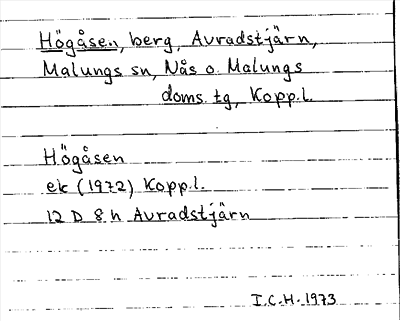 Högåsen, berg, Avradstjärn,
Malungs sn, Nås o. Malungs
doms. tg, Kopp.l.
Högåsen
ek (1972) Kopp.l.
12 D 8 h Avradstjärn
I.C.H. 1973